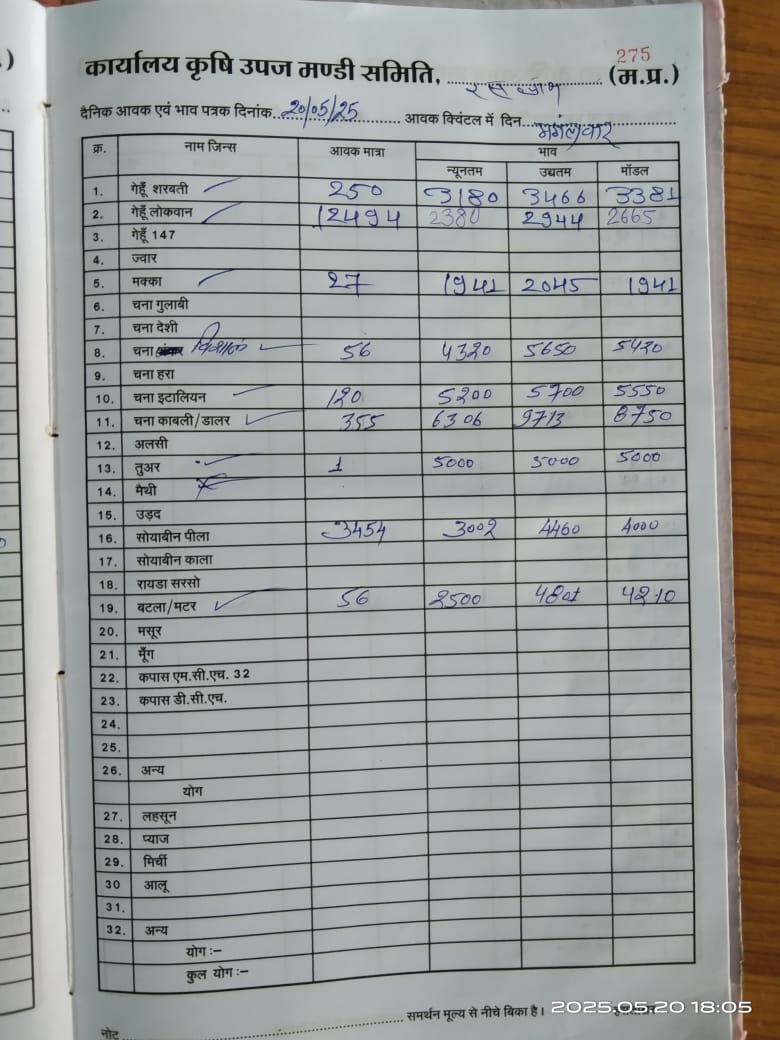 275
कार्यालय कृषि उपज मण्डी समिति, (म.प्र.)
दैनिक आवक एवं भाव पत्रक दिनांक 20/05/25 आवक क्विंटल में दिन मगंलवार
क्र. नाम जिन्स आवक मात्रा भाव
न्यूनतम उच्चतम मॉडल
1. गेहूँ शरबती 250 3180 3466 3381
2. गेहूँ लोकवान 12494 2380 2944 2665
3. गेहूँ 147
4. ज्वार
5. मक्का 27 1941 2045 1941
6. चना गुलाबी
7. चना देशी
8. चना विशाल 56 4320 5650 5420
9. चना हरा
10. चना इटालियन 120 5200 5700 5550
11. चना काबली/डालर 355 6306 9713 8750
12. अलसी
13. तुअर 1 5000 5000 5000
14. मैथी
15. उड़द
16. सोयाबीन पीला 3454 3002 4460 4000
17. सोयाबीन काला
18. रायडा सरसो
19. बटला/मटर 56 2500 4801 4210
20. मसूर
21. मूँग
22. कपास एम.सी.एच. 32
23. कपास डी.सी.एच.
24.
25.
26. अन्य
योग
27. लहसून
28. प्याज
29. मिर्ची
30 आलू
31.
32. अन्य
योग :–
कुल योग :–
समर्थन मूल्य से नीचे बिका है। 2025.05.20 18:05
नोट